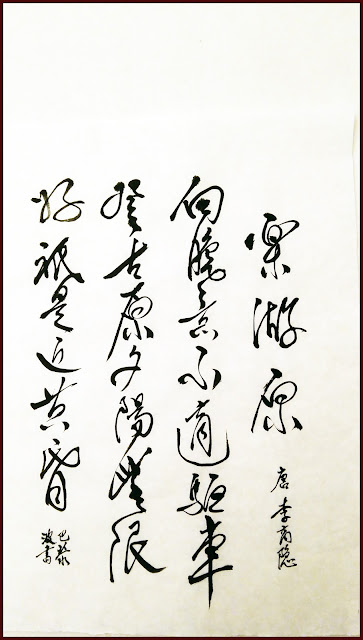 樂游原 唐 李商隐
向晚意不適驅車
登古原夕陽無限
好祇是近黄昏